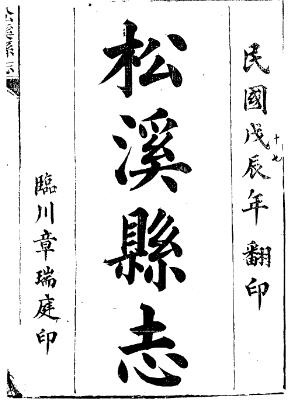 民國戊辰年翻印
十七
松溪縣志
臨川章瑞庭印
松溪縣志